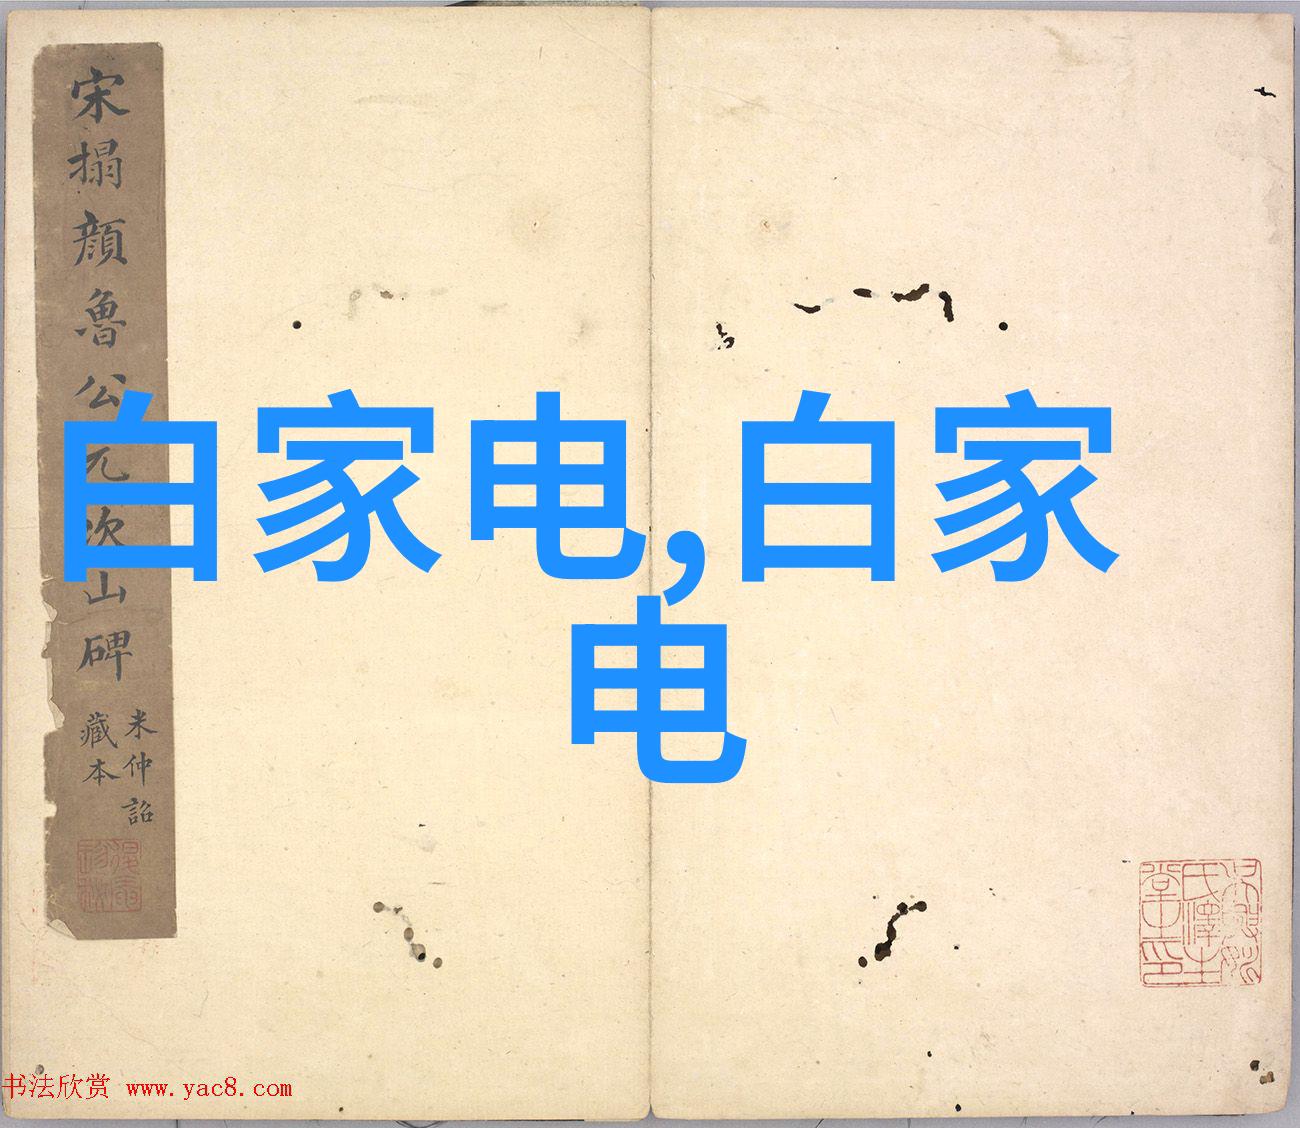 宋搨顔魯公元次山碑
米仲詔
藏本
白家电,白家
电
书法欣赏 www.yac8.com